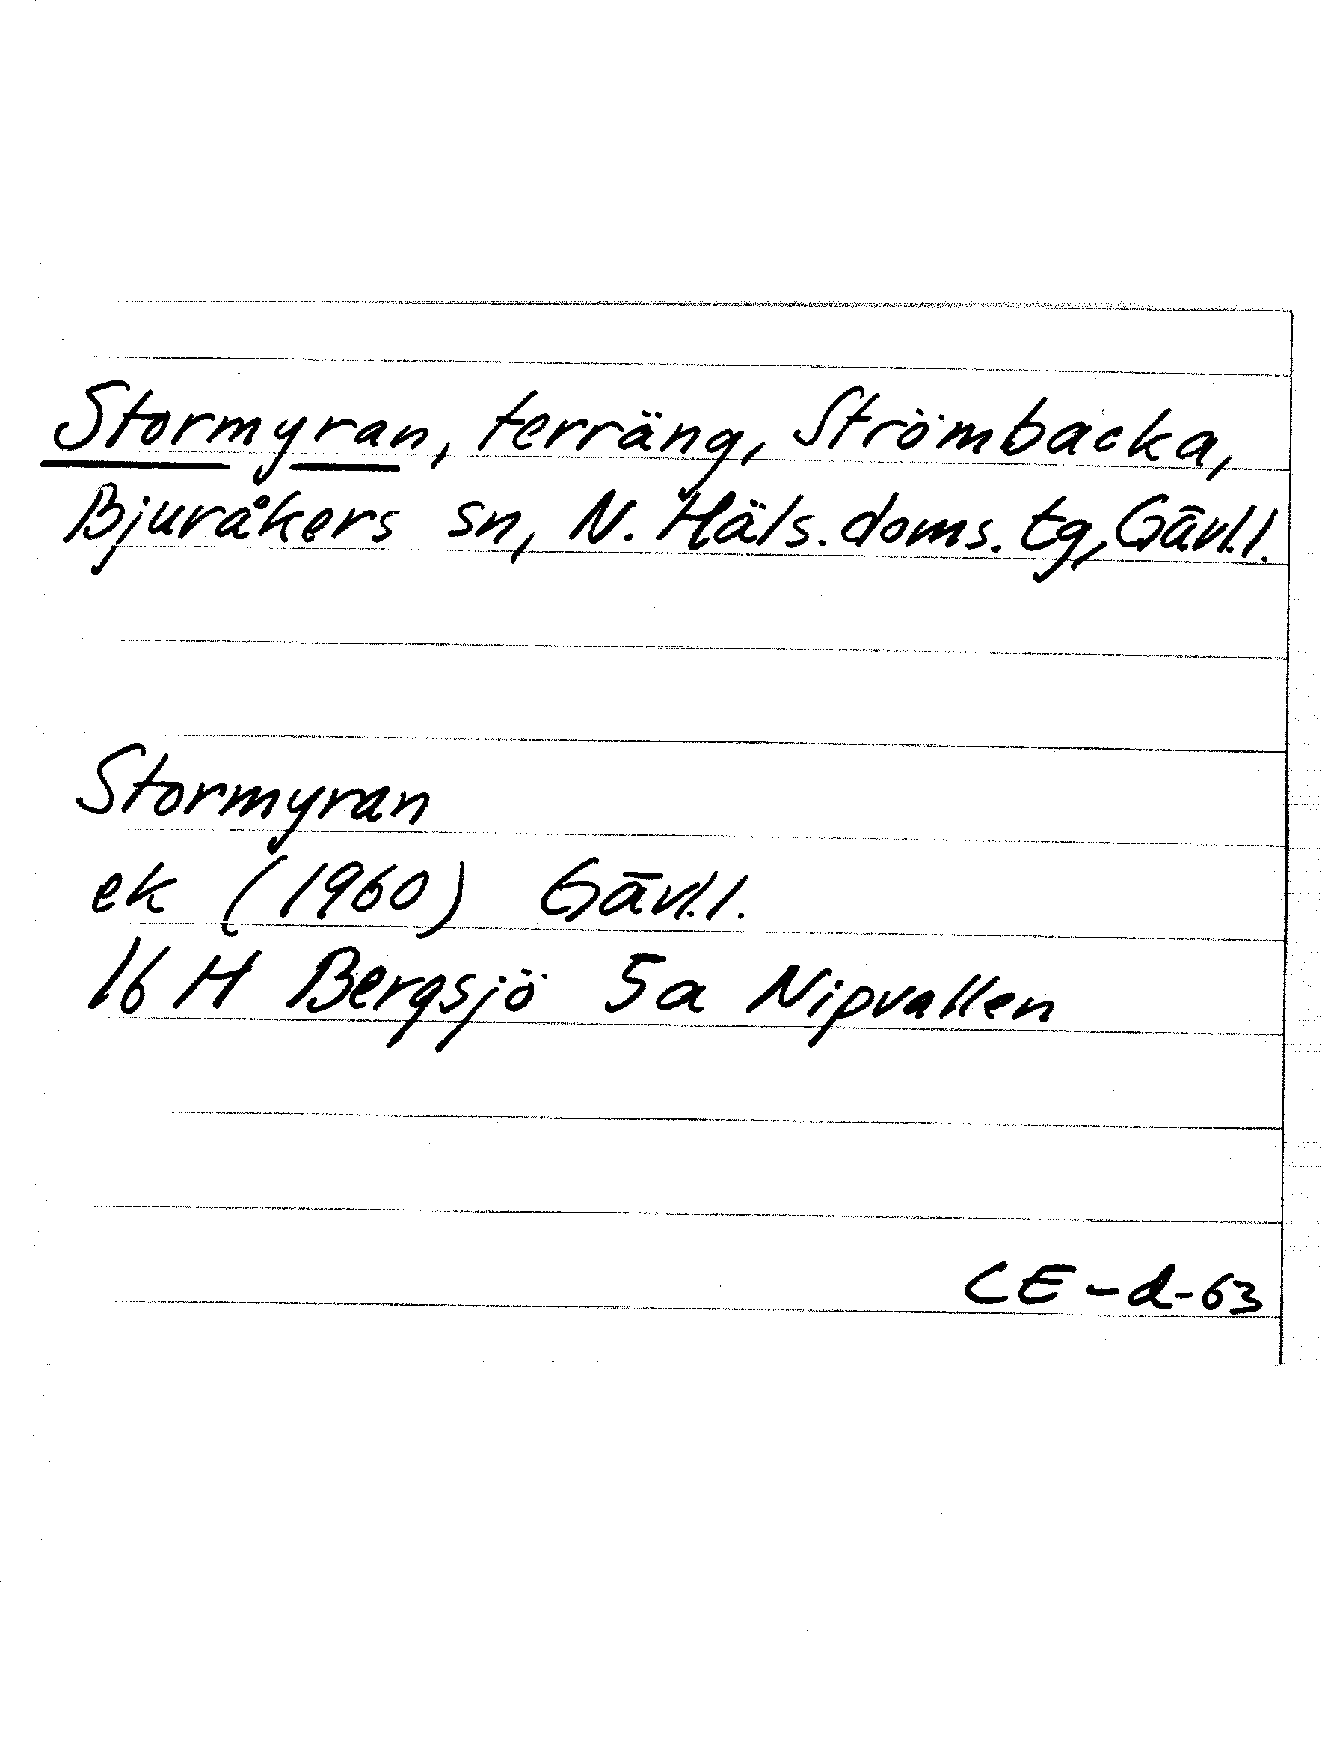 Stormyran, terräng, Strömbacka,
Bjuråkers sn, N. Häls. doms. tg, Gävl. l.
Stormyran
ek (1960) Gävl. l.
16 H Bergsjö 5a Nipvallen
CE-d-63